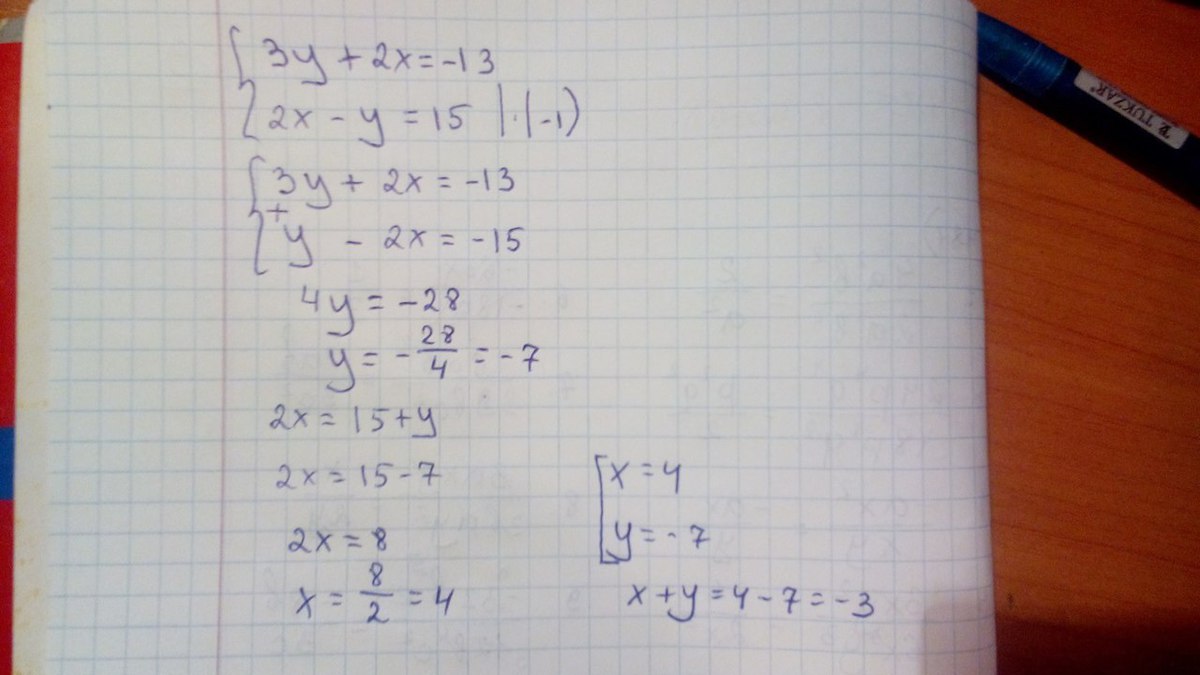 3y + 2x = -13
2x - y = 15 | · (-1)
3y + 2x = -13
+
y - 2x = -15
4y = -28
y = - 28/4 = -7
2x = 15 + y
2x = 15 - 7
2x = 8
x = 8/2 = 4
x = 4
y = -7
x + y = 4 - 7 = -3
TUKZAR